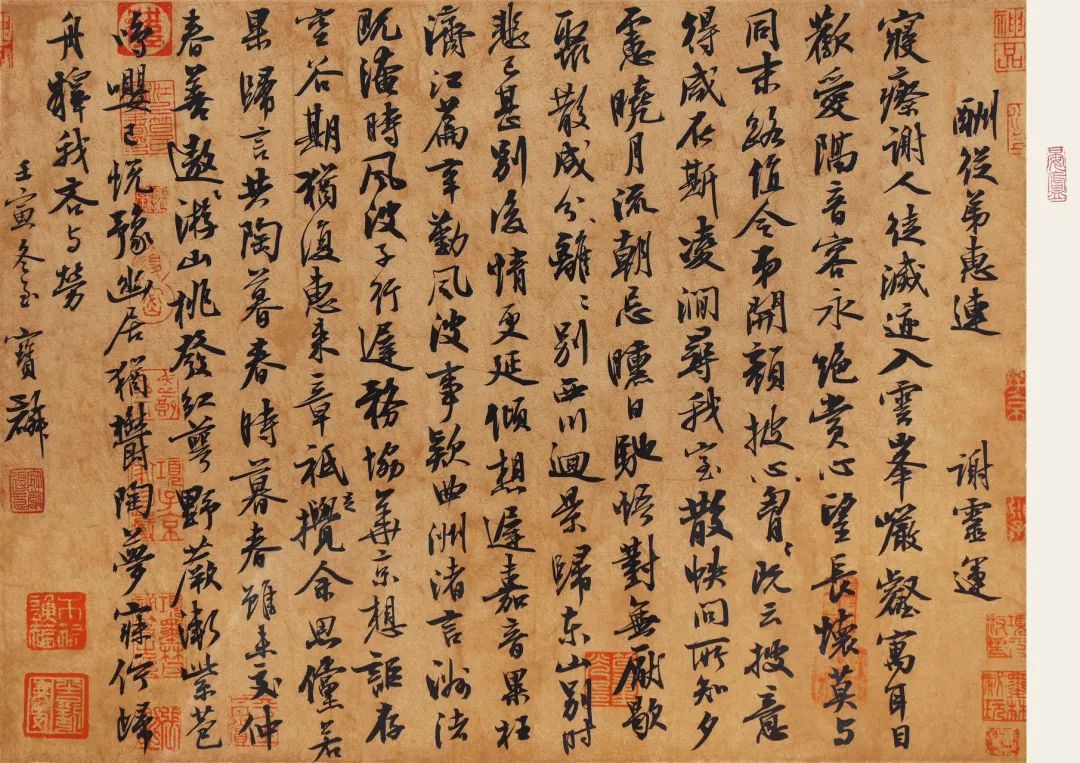 酬從弟惠連 謝靈運
寢瘵謝人徒滅迹入雲峯巖壑寓耳目
歡愛隔音容永絕賞心望長懷莫與
同末路值令弟開顏披心胷〻既云披意
得咸在斯凌澗尋我室散帙問所知夕
慮曉月流朝忌曛日馳悟對無厭歇
聚散成分離〻別西川迴景歸東山別時
悲已甚別後情更延傾想遲嘉音果枉
濟江篇辛勤風波事款曲洲渚言洲
既淹時風波子行遲務協華京想詎存
空谷期猶復惠来章祇攪余思儻若
果歸言共陶暮春時暮春雖未交仲
春善遨游山桃發紅萼野蕨漸紫苞
鳴嚶已悅豫幽居猶鬱陶夢寐佇歸
舟釋我吝与勞
壬寅冬至 寶麟
神品